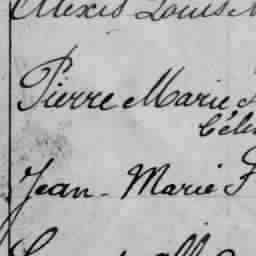 Alexis Louis M
Pierre Marie
Céles
Jean-Marie F